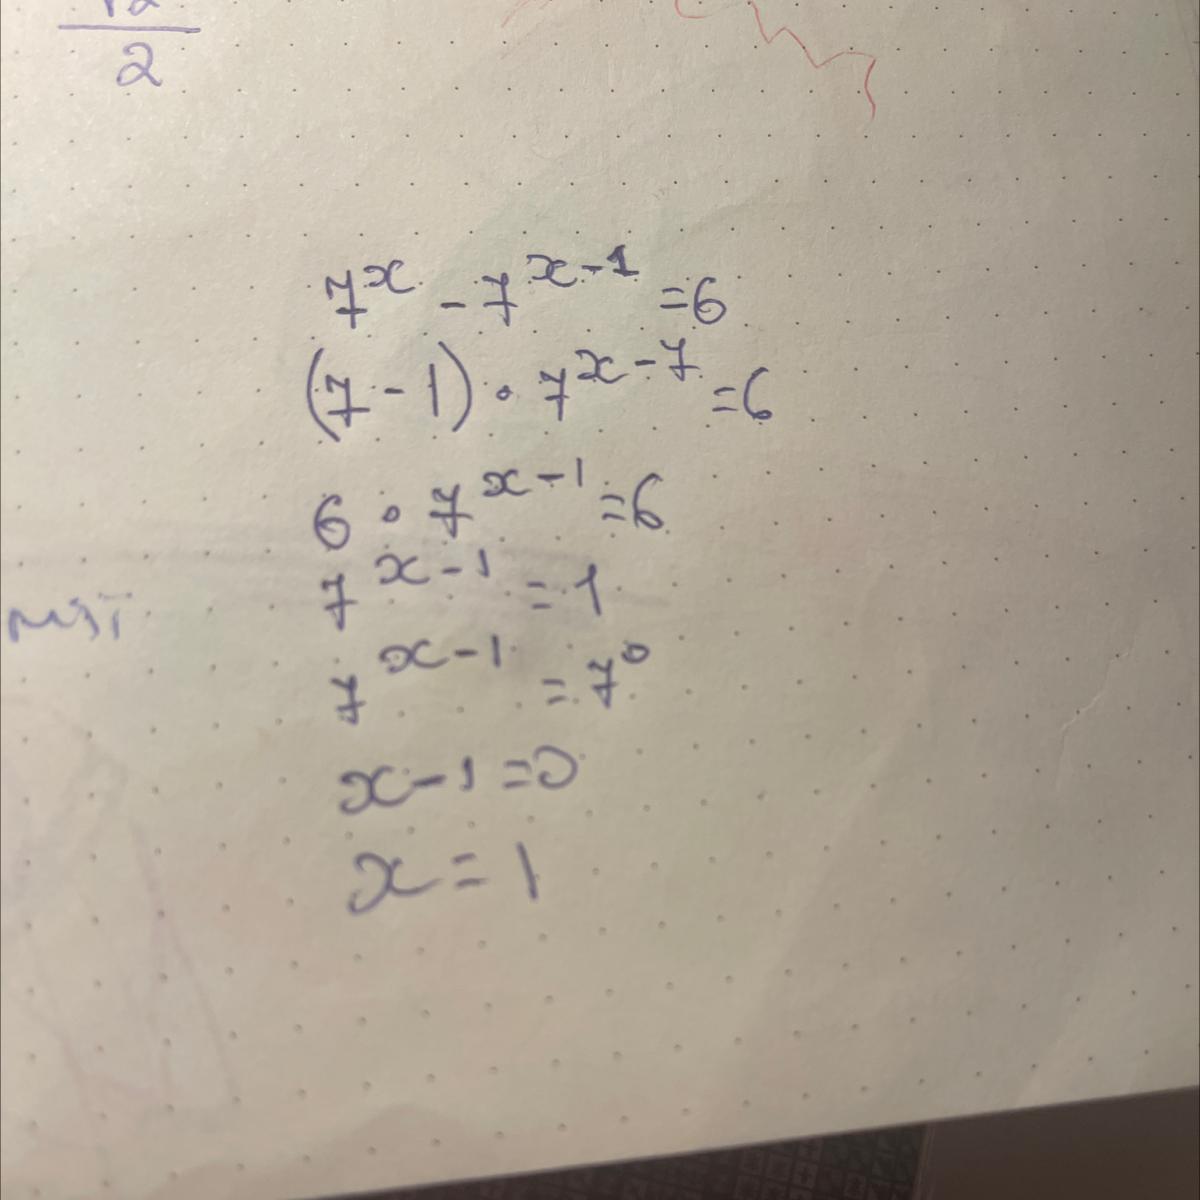 2
7^x - 7^{x-1} = 6
(7 - 1) • 7^{x-7} = 6
6 • 7^{x-1} = 6
7^{x-1} = 1
7^{x-1} = 7^0
x - 1 = 0
x = 1